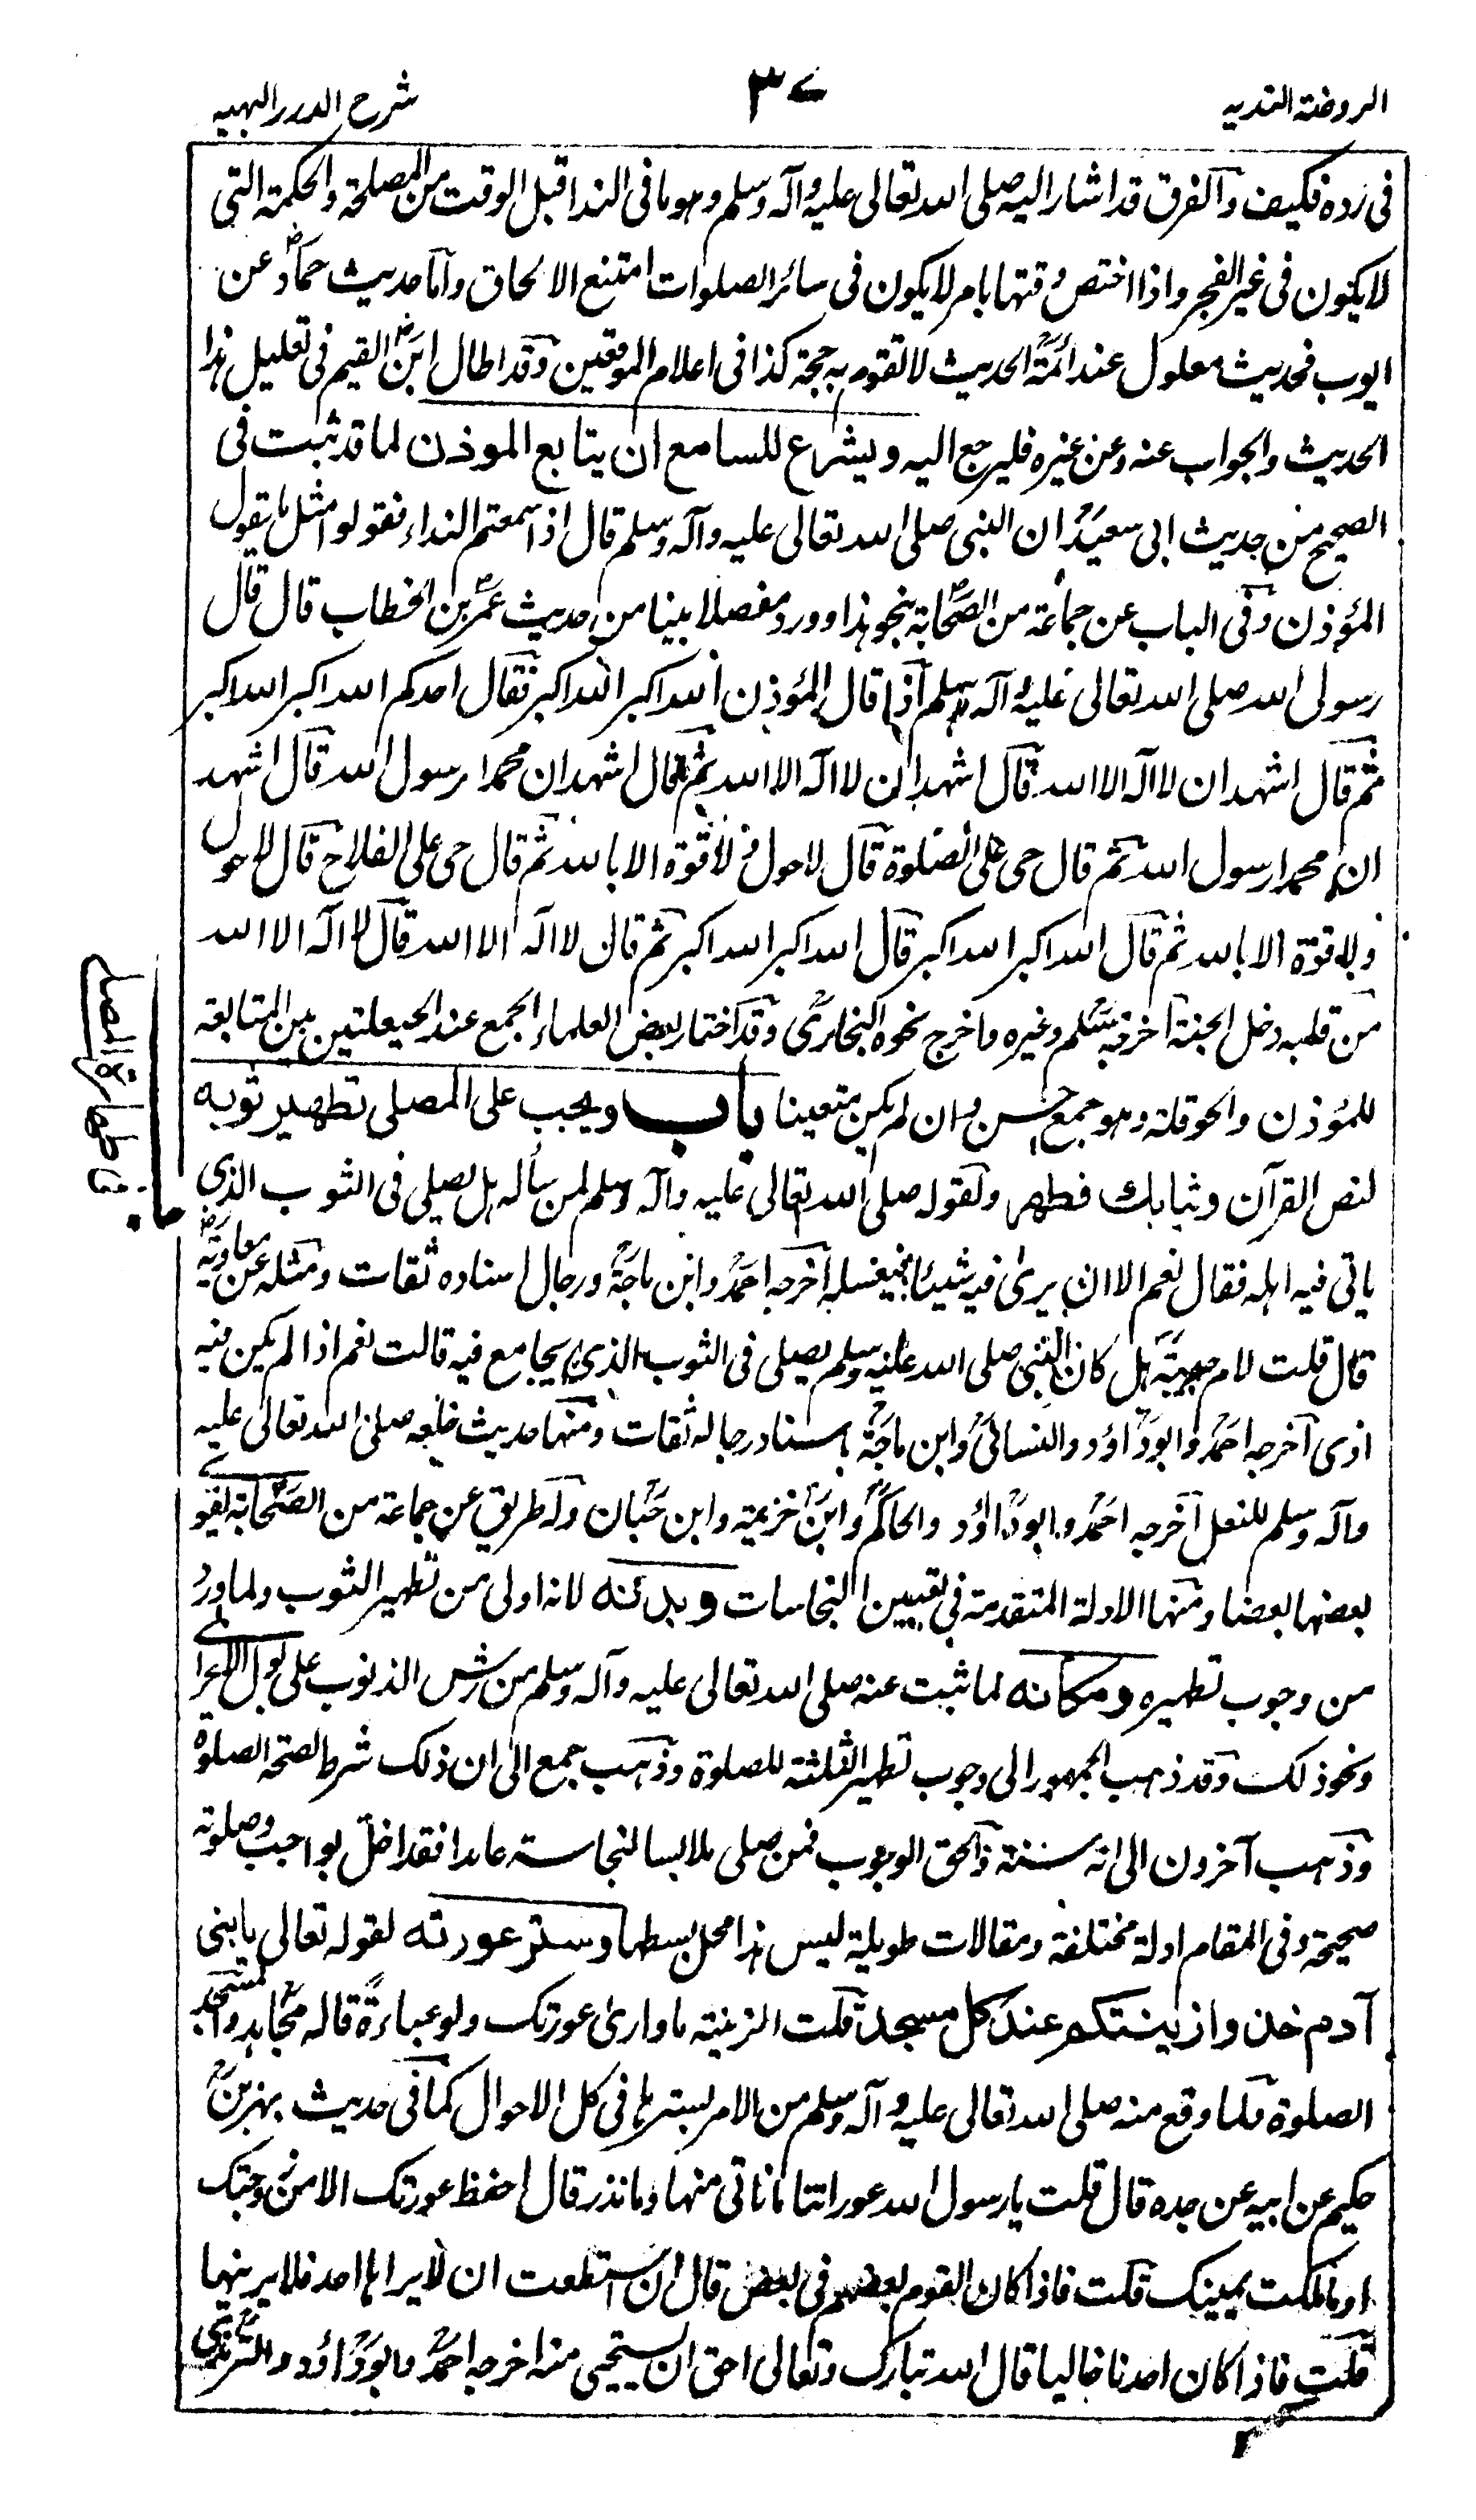 الروضة الندية
٣٧
شرح الدرر البهية
فى رده فكيف والفرق قد اشار اليه صلى الله تعالى عليه وآله وسلم وهو ما فى الندا قبل الوقت من المصلحة والحكمة التى
لا يكون فى غير الفجر واذا اختص وقتها بامر لا يكون فى سائر الصلوات امتنع الالحاق واما حديث حماد عن
ايوب فحديث معلول عند ائمة الحديث لا تقوم به حجة كذا فى اعلام الموقعين وقد اطال ابن القيم فى تعليل هذا
الحديث والجواب عنه وعن غيره فليرجع اليه ويشرع للسامع ان يتابع الموذن لما قد ثبت فى
الصحيح من حديث ابى سعيد ان النبى صلى الله تعالى عليه وآله وسلم قال اذا سمعتم النداء فقولوا مثل ما يقول
المؤذن وفى الباب عن جماعة من الصحابة بنحو هذا وورد مفصلا مبينا من حديث عمر بن الخطاب قال قال
رسول الله صلى الله تعالى عليه وآله وسلم اذا قال المؤذن الله اكبر الله اكبر فقال احدكم الله اكبر الله اكبر
ثم قال اشهد ان لا اله الا الله قال اشهد ان لا اله الا الله ثم قال اشهد ان محمدا رسول الله قال اشهد
ان محمدا رسول الله ثم قال حى على الصلوة قال لا حول ولا قوة الا بالله ثم قال حى على الفلاح قال لا حول
ولا قوة الا بالله ثم قال الله اكبر الله اكبر قال الله اكبر الله اكبر ثم قال لا اله الا الله قال لا اله الا الله
من قلبه دخل الجنة اخرجه مسلم وغيره واخرج نحوه البخارى وقد اختار بعض العلماء الجمع عند الحيعلتين بين المتابعة
للمؤذن والحوقلة وهو جمع حسن وان لم يكن متعينا باب ويجب على المصلى تطهير ثوبه
لنص القرآن وثيابك فطهر ولقوله صلى الله تعالى عليه وآله وسلم لمن سأله هل يصلى فى الثوب الذى
ياتى فيه اهله فقال نعم الا ان يرى فيه شيئا فيغسله اخرجه احمد وابن ماجة ورجال اسناده ثقات ومثله عن معاوية
قال قلت لام حبيبة هل كان النبى صلى الله عليه وسلم يصلى فى الثوب الذى يجامع فيه قالت نعم اذا لم يكن فيه
اذى اخرجه احمد وابو داؤد والنسائى وابن ماجة باسناد رجاله ثقات ومنها حديث خلعه صلى الله تعالى عليه
وآله وسلم للنعل اخرجه احمد وابو داؤد والحاكم وابن خزيمة وابن حبان وله طريق عن جماعة من الصحابة يقوى
بعضها بعضا ومنها الادلة المتقدمة فى تعيين النجاسات وبدنه لانه اولى من تطهير الثوب ولما ورد
من وجوب تطهيره ومكانه لما ثبت عنه صلى الله تعالى عليه وآله وسلم من رش الذنوب على بول الاعرابى
ونحو ذلك وقد ذهب الجمهور الى وجوب تطهير الثلثة للصلوة وذهب جمع الى ان ذلك شرط لصحة الصلوة
وذهب آخرون الى انه سنة والحق الوجوب فمن صلى ملابسا لنجاسة عامدا فقد اخل بواجب وصلوته
صحيحة وفى المقام ادلة مختلفة ومقالات طويلة ليس هذا محل بسطها وستر عورته لقوله تعالى يا بنى
آدم خذوا زينتكم عند كل مسجد قلت الزينة ما وارى عورتك ولو عباءة قاله مجاهد والمسجد
الصلوة ولما وقع منه صلى الله تعالى عليه وآله وسلم من الامر بسترها فى كل الاحوال كما فى حديث بهز بن
حكيم عن ابيه عن جده قال قلت يا رسول الله عوراتنا ما ناتى منها وما نذر قال احفظ عورتك الا من زوجتك
او ما ملكت يمينك قلت فاذا كان القوم بعضهم فى بعض قال ان استطعت ان لا يراها احد فلا يرينها
قلت فاذا كان احدنا خاليا قال الله تبارك وتعالى احق ان يستحيى منه اخرجه احمد وابو داؤد والترمذى